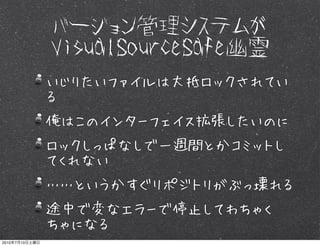 バージョン管理システムが
VisualSourceSafe幽霊
いじりたいファイルは大抵ロックされてい
る
俺はこのインターフェイス拡張したいのに
ロックしっぱなしで一週間とかコミットし
てくれない
……というかすぐリポジトリがぶっ壊れる
途中で変なエラーで停止してわちゃく
ちゃになる
2010年7月10日土曜日